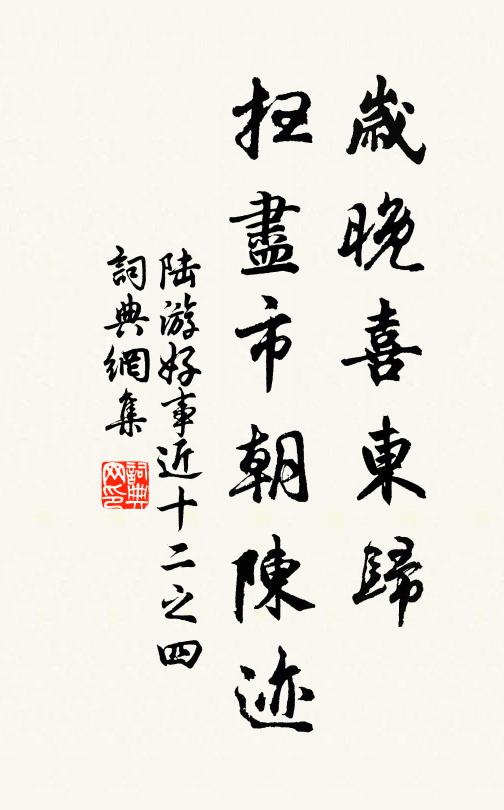 歲晚喜東歸
掃盡市朝陳迹
陸游好事近十二之四
詞典網集
詞典网印